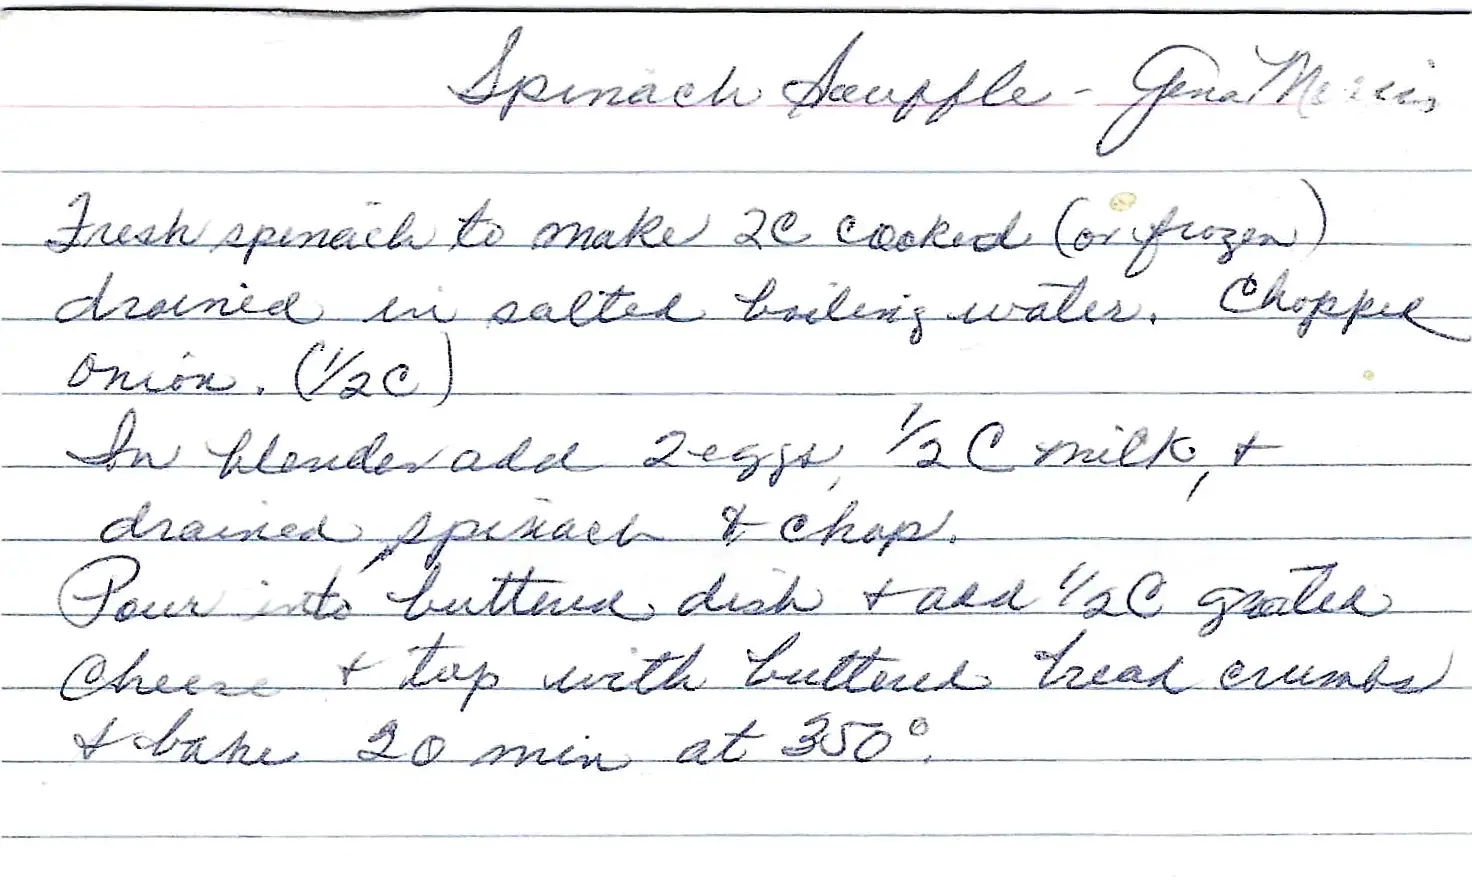 Spinach Souffle - Gena
Fresh spinach to make 2C cooked (or frozen)
drained in salted boiling water. Chopped
onion. (1/2C)
In blender add 2 eggs, 1/2 C milk, +
drained spinach & chop.
Pour into buttered dish + add 1/2C grated
cheese + top with buttered bread crumbs
+ bake 20 min at 350°.